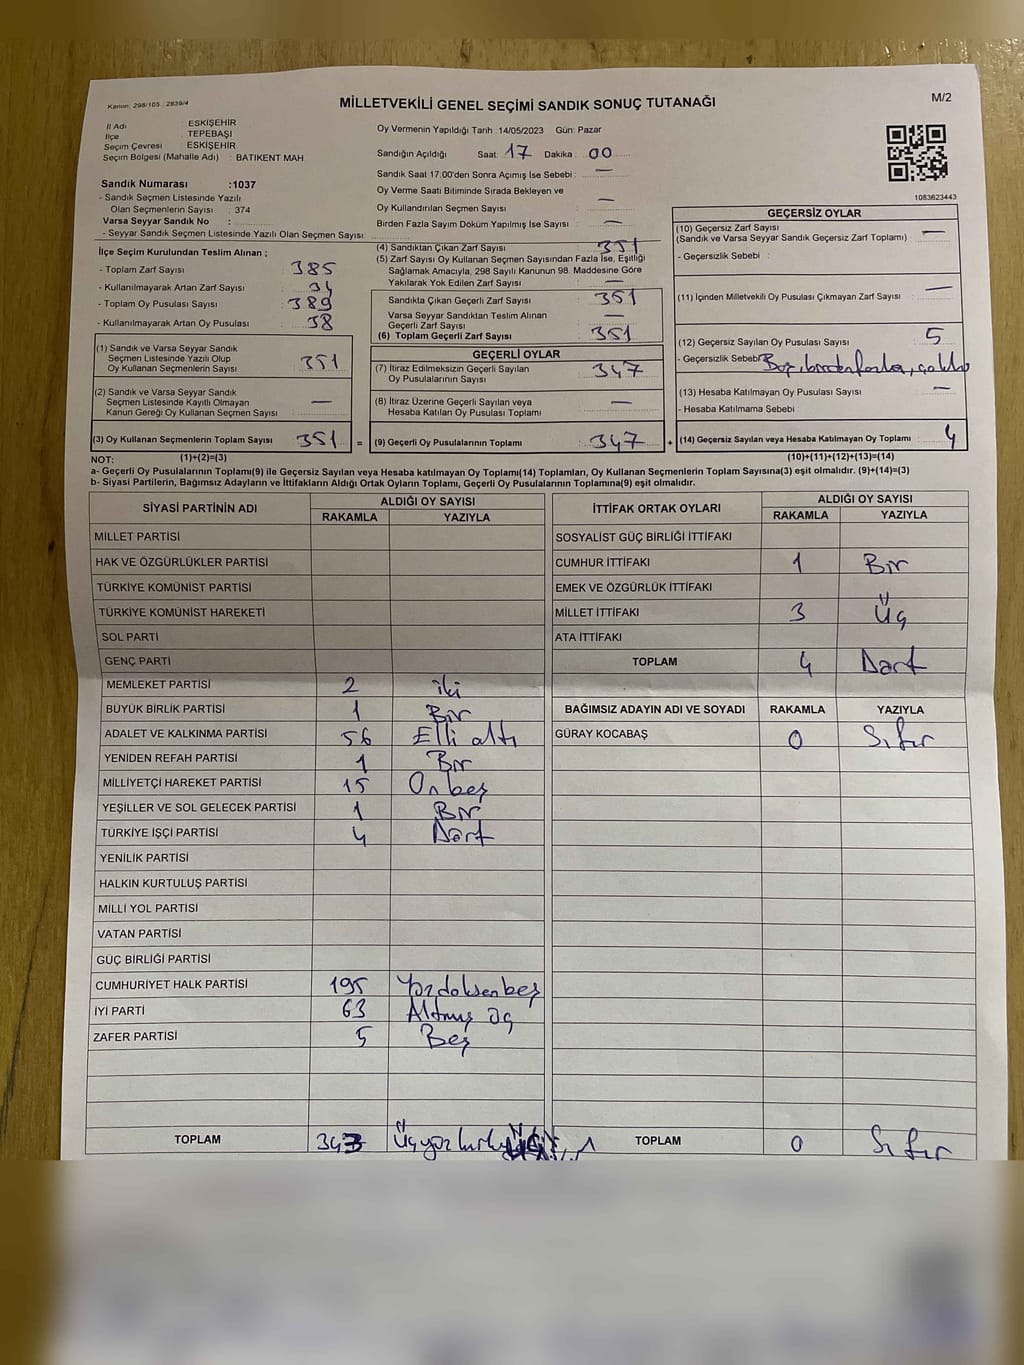 Kanun: 298/105 : 2839/4
MİLLETVEKİLİ GENEL SEÇİMİ SANDIK SONUÇ TUTANAĞI
M/2
İl Adı ESKİŞEHİR
İlçe TEPEBAŞI
Seçim Çevresi ESKİŞEHİR
Seçim Bölgesi (Mahalle Adı) : BATIKENT MAH
Sandık Numarası :1037
- Sandık Seçmen Listesinde Yazılı
Olan Seçmenlerin Sayısı : 374
Varsa Seyyar Sandık No :
- Seyyar Sandık Seçmen Listesinde Yazılı Olan Seçmen Sayısı:
Oy Vermenin Yapıldığı Tarih :14/05/2023 Gün: Pazar
Sandığın Açıldığı Saat: 17 Dakika : 00
Sandık Saat 17:00'den Sonra Açımış İse Sebebi : —
Oy Verme Saati Bitiminde Sırada Bekleyen ve
Oy Kullandırılan Seçmen Sayısı —
Birden Fazla Sayım Döküm Yapılmış İse Sayısı : —
1083623443
İlçe Seçim Kurulundan Teslim Alınan ;
- Toplam Zarf Sayısı : 385
- Kullanılmayarak Artan Zarf Sayısı : 34
- Toplam Oy Pusulası Sayısı : 389
- Kullanılmayarak Artan Oy Pusulası : 38
(1) Sandık ve Varsa Seyyar Sandık
Seçmen Listesinde Yazılı Olup
Oy Kullanan Seçmenlerin Sayısı : 351
(2) Sandık ve Varsa Seyyar Sandık
Seçmen Listesinde Kayıtlı Olmayan
Kanun Gereği Oy Kullanan Seçmen Sayısı : —
(3) Oy Kullanan Seçmenlerin Toplam Sayısı 351 =
(1)+(2)=(3)
(4) Sandıktan Çıkan Zarf Sayısı : 351
(5) Zarf Sayısı Oy Kullanan Seçmen Sayısından Fazla İse, Eşitliği
Sağlamak Amacıyla, 298 Sayılı Kanunun 98. Maddesine Göre
Yakılarak Yok Edilen Zarf Sayısı : —
Sandıkta Çıkan Geçerli Zarf Sayısı : 351
Varsa Seyyar Sandıktan Teslim Alınan
Geçerli Zarf Sayısı : —
(6) Toplam Geçerli Zarf Sayısı : 351
GEÇERLİ OYLAR
(7) İtiraz Edilmeksizin Geçerli Sayılan
Oy Pusulalarının Sayısı : 347
(8) İtiraz Üzerine Geçerli Sayılan veya
Hesaba Katılan Oy Pusulası Toplamı : —
(9) Geçerli Oy Pusulalarının Toplamı : 347 +
GEÇERSİZ OYLAR
(10) Geçersiz Zarf Sayısı
(Sandık ve Varsa Seyyar Sandık Geçersiz Zarf Toplamı) : —
- Geçersizlik Sebebi :
(11) İçinden Milletvekili Oy Pusulası Çıkmayan Zarf Sayısı : —
(12) Geçersiz Sayılan Oy Pusulası Sayısı : 5
- Geçersizlik Sebebi
(13) Hesaba Katılmayan Oy Pusulası Sayısı : —
- Hesaba Katılmama Sebebi :
(14) Geçersiz Sayılan veya Hesaba Katılmayan Oy Toplamı : 4
(10)+(11)+(12)+(13)=(14)
NOT:
a- Geçerli Oy Pusulalarının Toplamı(9) ile Geçersiz Sayılan veya Hesaba katılmayan Oy Toplamı(14) Toplamları, Oy Kullanan Seçmenlerin Toplam Sayısına(3) eşit olmalıdır. (9)+(14)=(3)
b- Siyasi Partilerin, Bağımsız Adayların ve İttifakların Aldığı Ortak Oyların Toplamı, Geçerli Oy Pusulalarının Toplamına(9) eşit olmalıdır.
SİYASİ PARTİNİN ADI ALDIĞI OY SAYISI
RAKAMLA YAZIYLA
MİLLET PARTİSİ
HAK VE ÖZGÜRLÜKLER PARTİSİ
TÜRKİYE KOMÜNİST PARTİSİ
TÜRKİYE KOMÜNİST HAREKETİ
SOL PARTİ
GENÇ PARTİ
MEMLEKET PARTİSİ 2 iki
BÜYÜK BİRLİK PARTİSİ 1 Bir
ADALET VE KALKINMA PARTİSİ 56 Elli altı
YENİDEN REFAH PARTİSİ 1 Bir
MİLLİYETÇİ HAREKET PARTİSİ 15 Onbeş
YEŞİLLER VE SOL GELECEK PARTİSİ 1 Bir
TÜRKİYE İŞÇİ PARTİSİ 4 Dört
YENİLİK PARTİSİ
HALKIN KURTULUŞ PARTİSİ
MİLLİ YOL PARTİSİ
VATAN PARTİSİ
GÜÇ BİRLİĞİ PARTİSİ
CUMHURİYET HALK PARTİSİ 195 Yüzdoksanbeş
İYİ PARTİ 63 Altmış üç
ZAFER PARTİSİ 5 Beş
TOPLAM 343
İTTİFAK ORTAK OYLARI ALDIĞI OY SAYISI
RAKAMLA YAZIYLA
SOSYALİST GÜÇ BİRLİĞİ İTTİFAKI
CUMHUR İTTİFAKI 1 Bir
EMEK VE ÖZGÜRLÜK İTTİFAKI
MİLLET İTTİFAKI 3 Üç
ATA İTTİFAKI
TOPLAM 4 Dört
BAĞIMSIZ ADAYIN ADI VE SOYADI RAKAMLA YAZIYLA
GÜRAY KOCABAŞ 0 Sıfır
TOPLAM 0 Sıfır